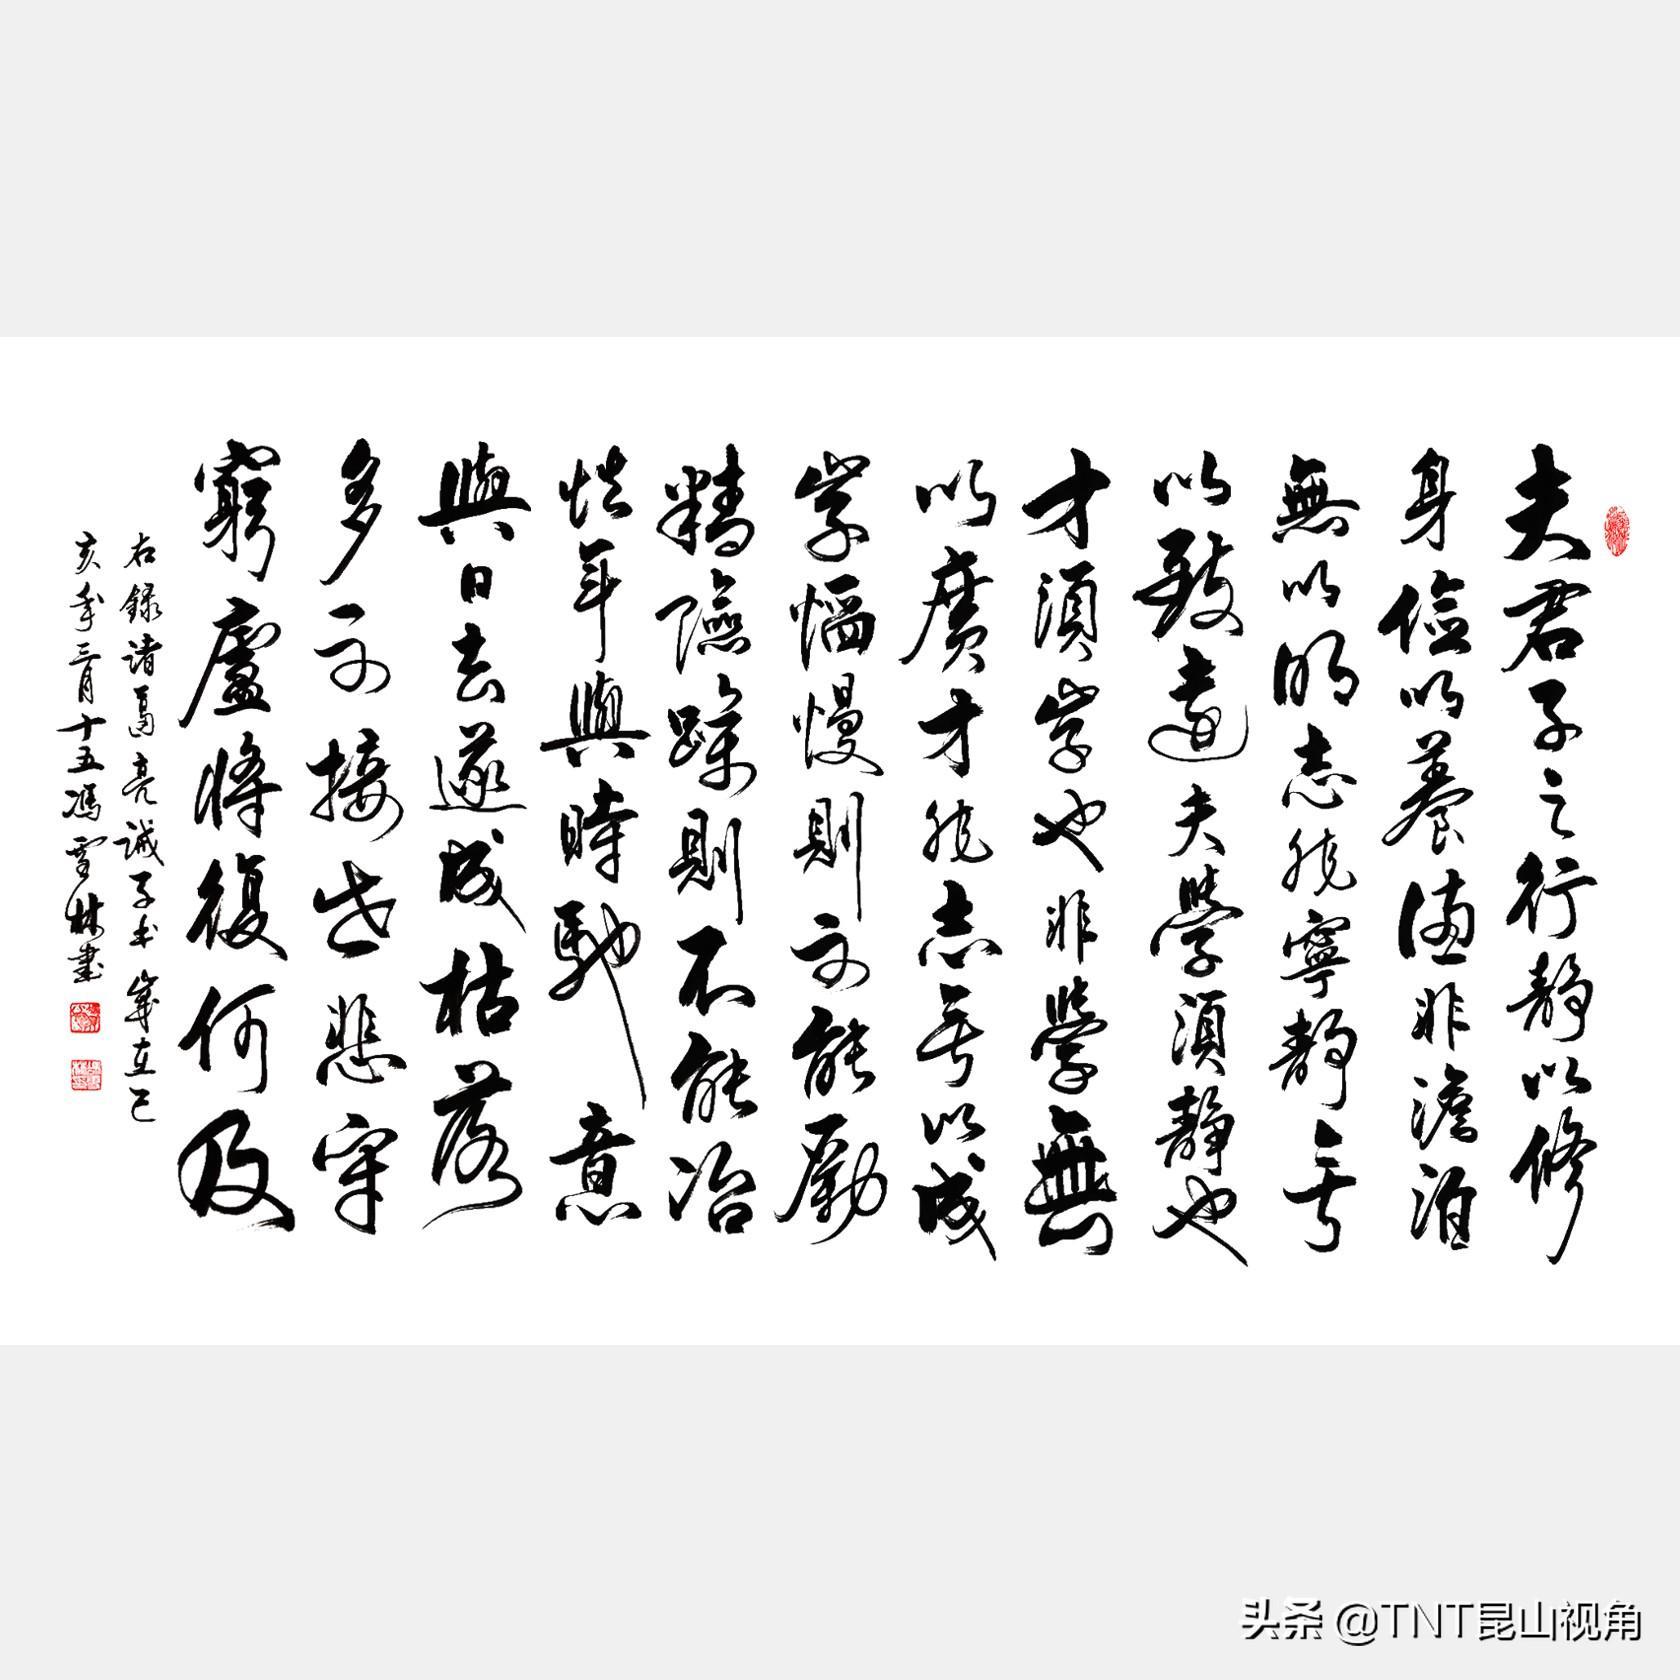 夫君子之行静以修
身儉以養德非澹泊
無以明志非寧静无
以致遠夫學須静也
才須学也非學無
以廣才非志无以成
学慆慢則不能勵
精險躁則不能冶
性年與時馳意
與日去遂成枯落
多不接世悲守
窮廬將復何及
右録諸葛亮誡子书歲在己
亥年三月十五馮雪林書
头条 @TNT昆山视角